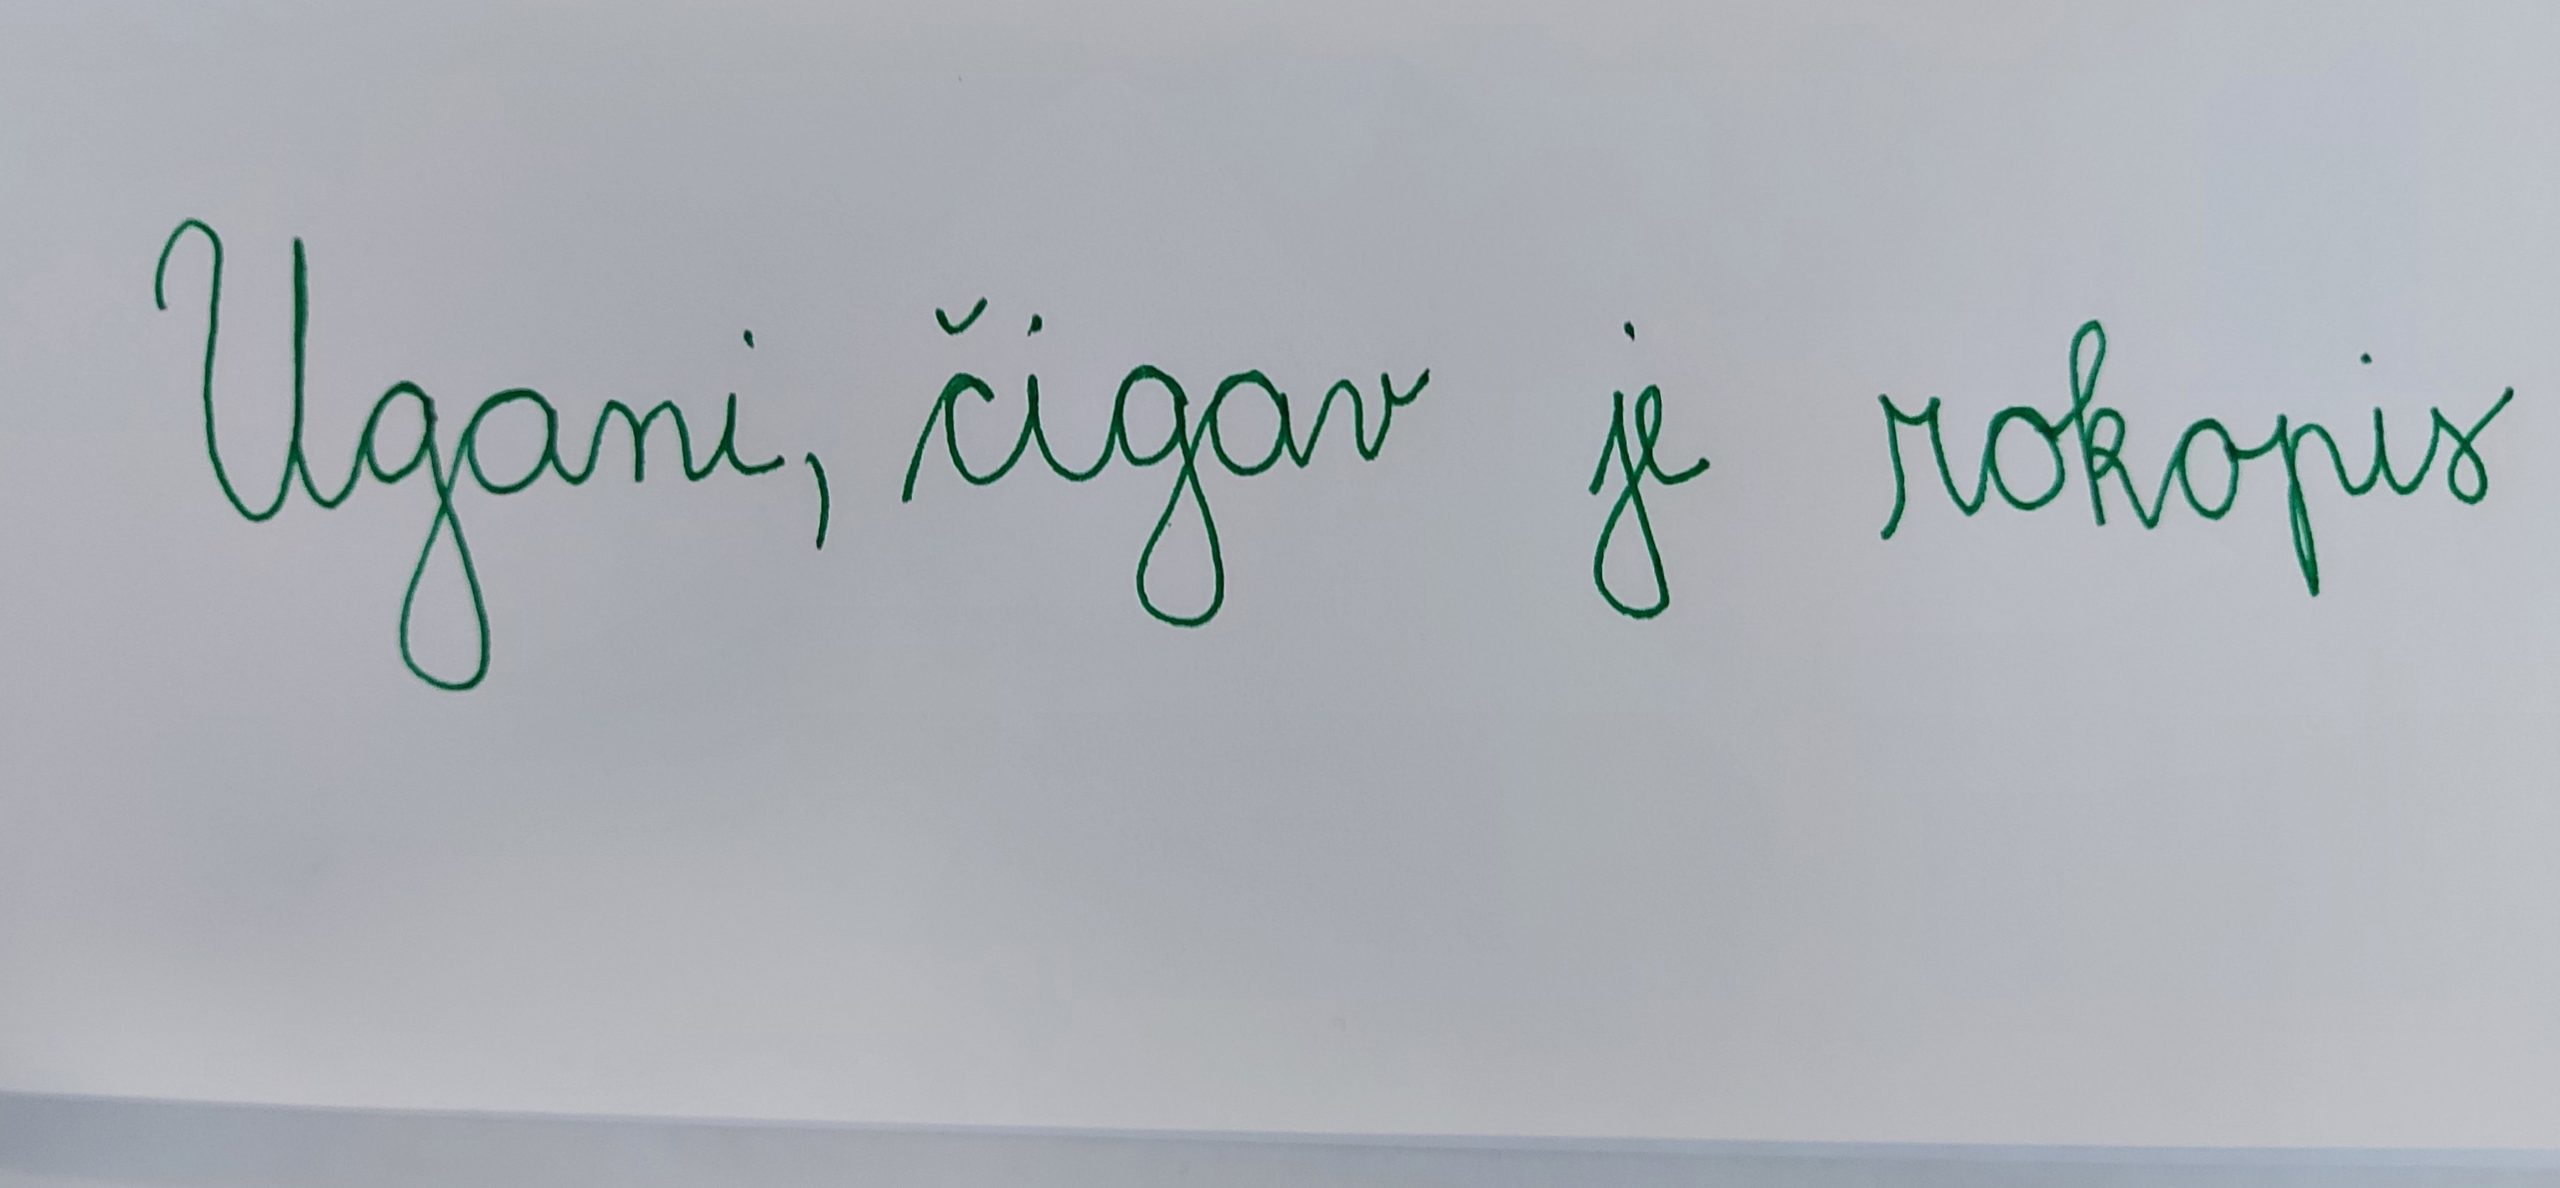 Ugani, čigav je rokopis